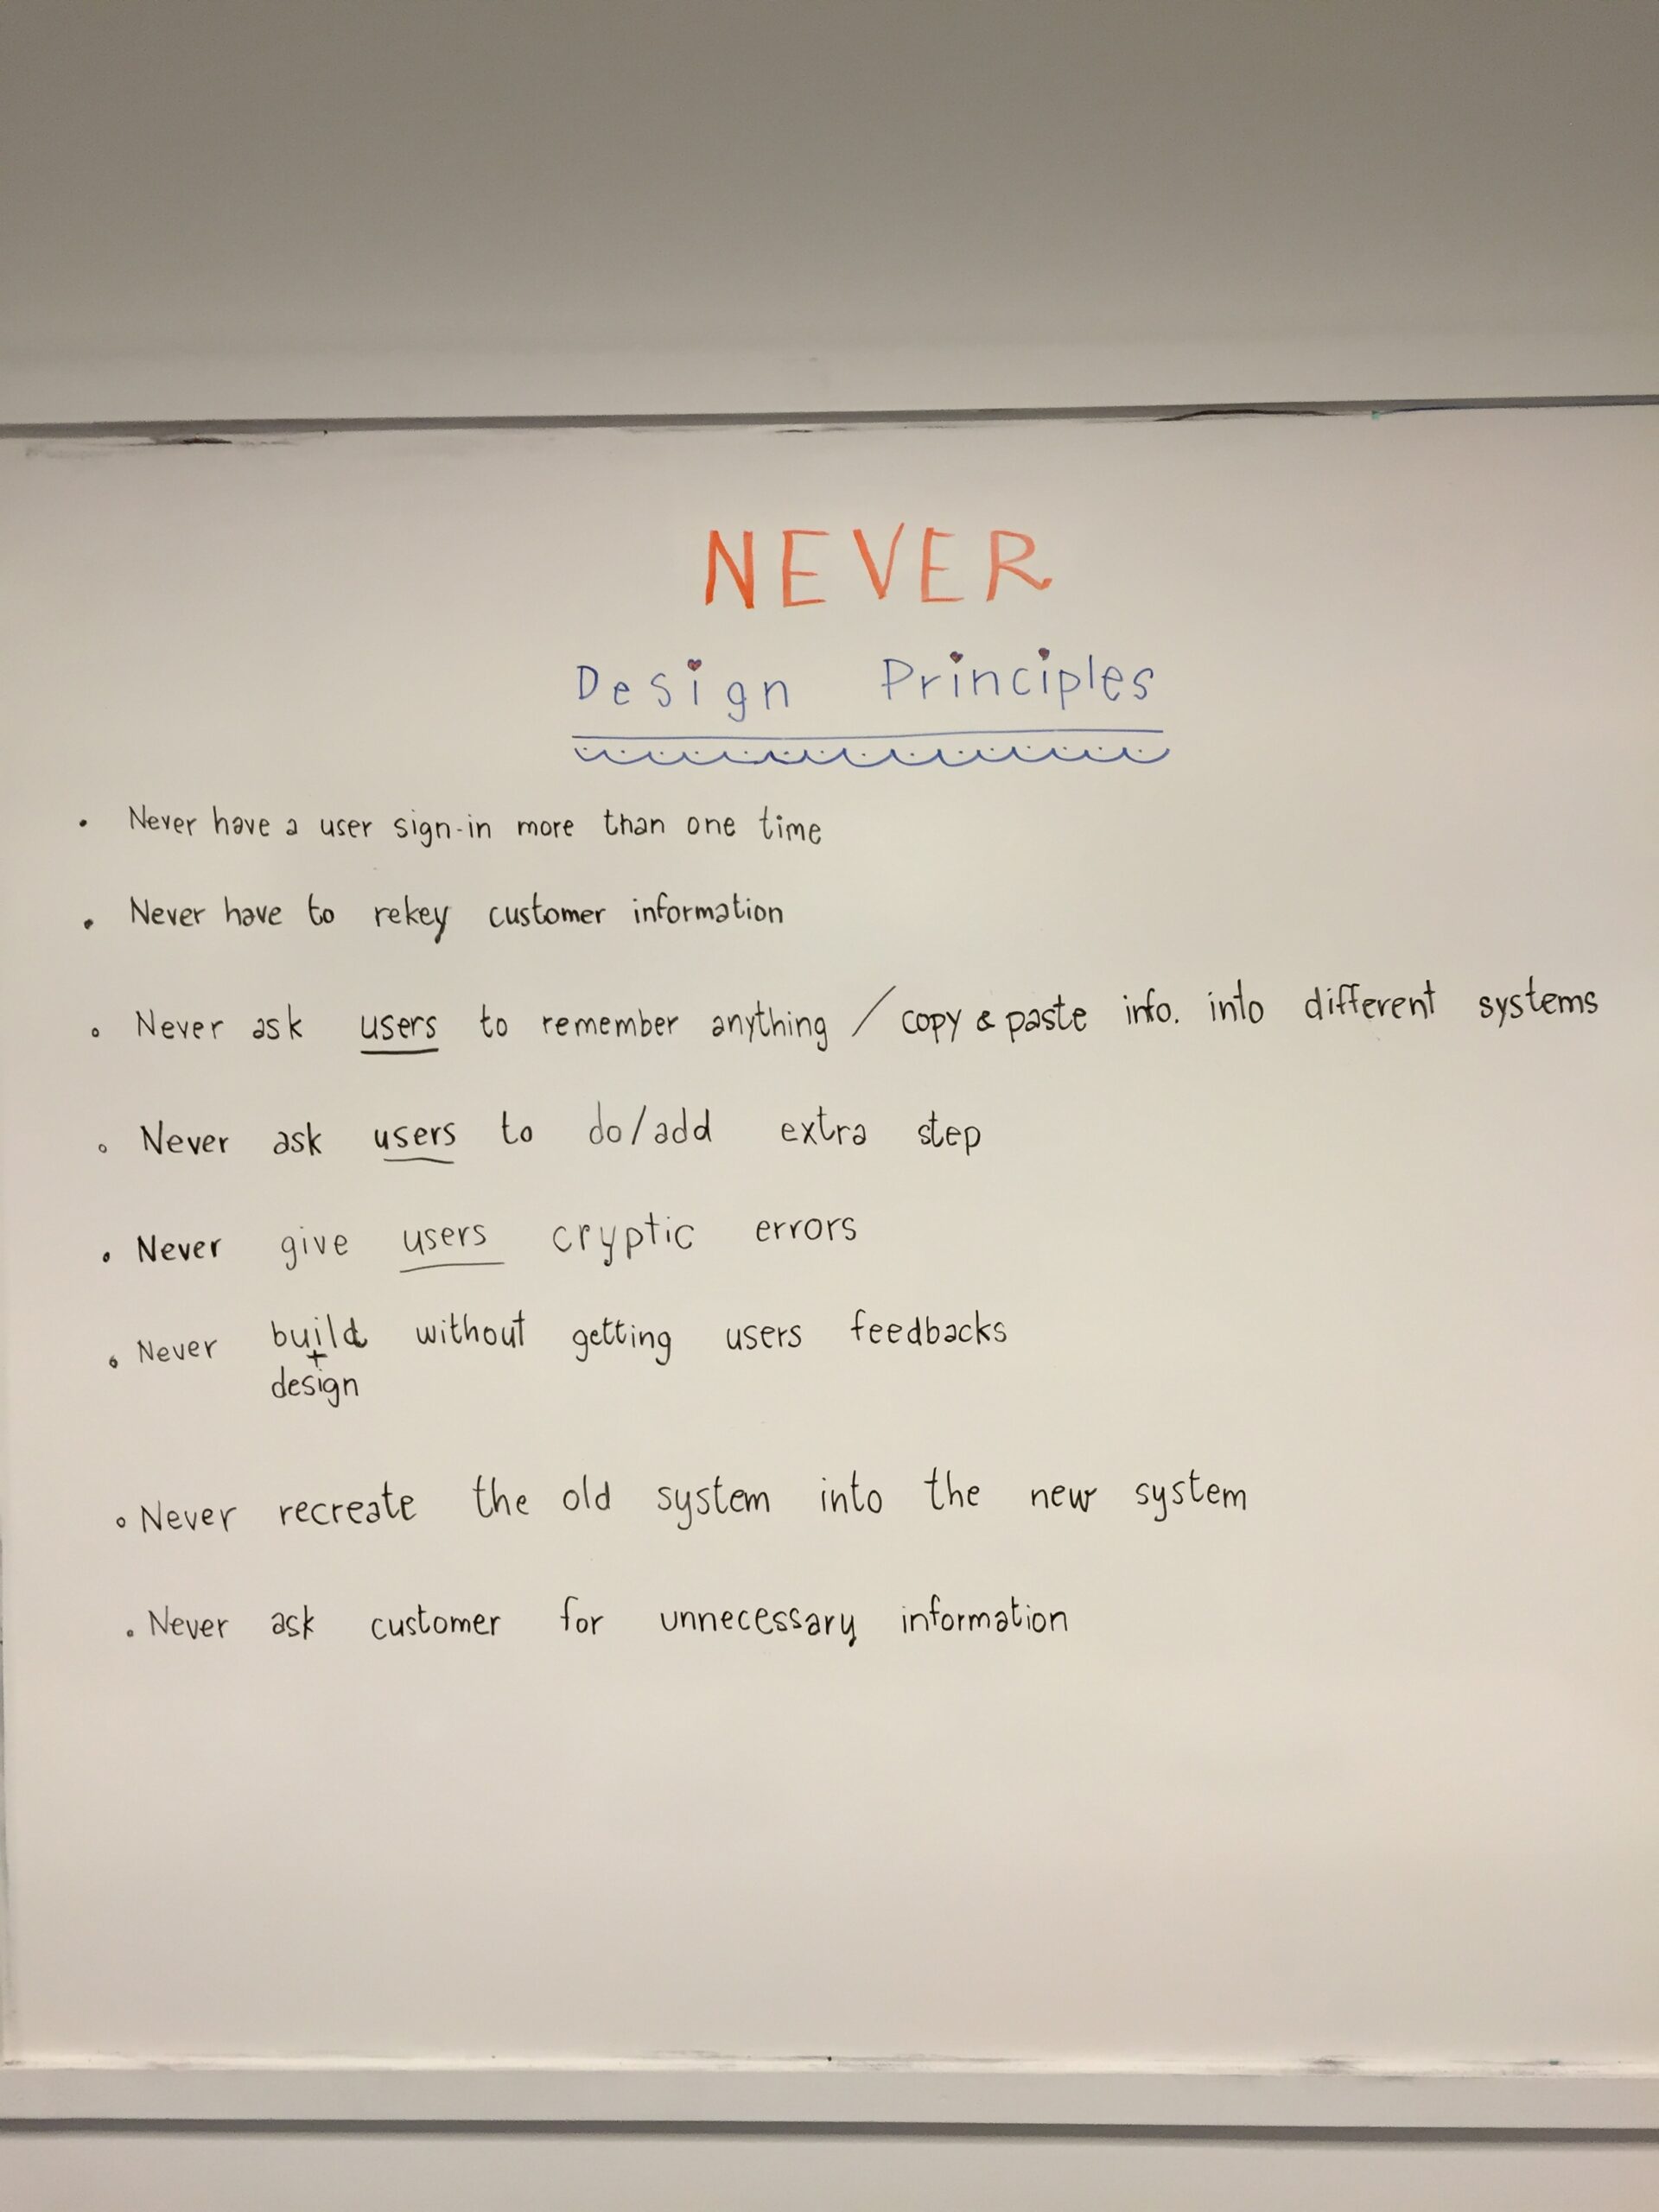 NEVER
Design Principles
• Never have a user sign-in more than one time
• Never have to rekey customer information
• Never ask users to remember anything / copy & paste info. into different systems
• Never ask users to do/add extra step
• Never give users cryptic errors
• Never build without getting users feedbacks
+
design
• Never recreate the old system into the new system
• Never ask customer for unnecessary information